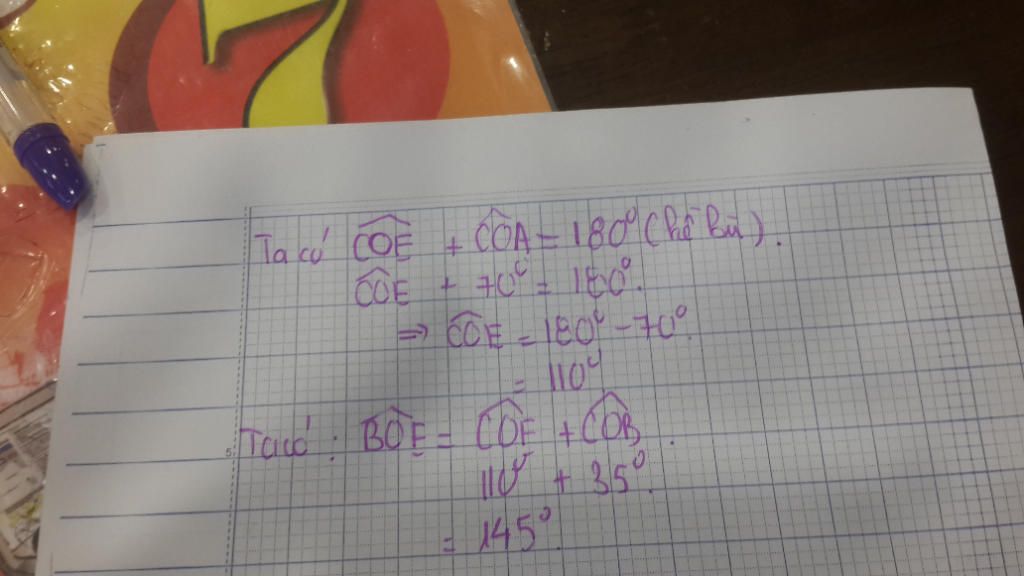 Ta có COE + COA = 180° (kề bù).
COE + 70° = 180°.
⇒ COE = 180° - 70°
= 110°
Ta có: BOE = COE + COB.
110° + 35°.
= 145°.